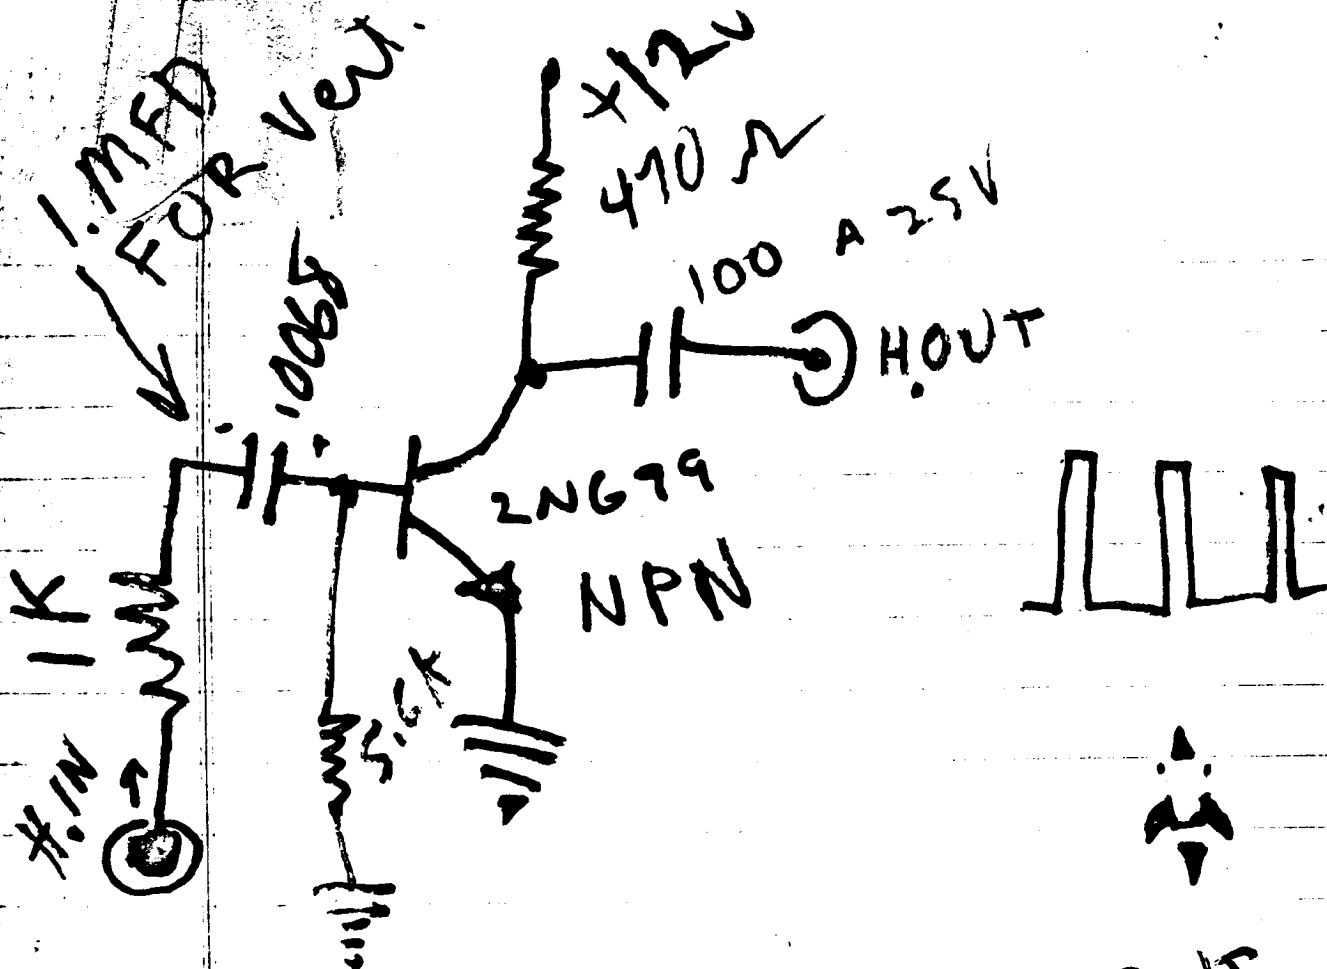 1.MFD
FOR Vert.
X12V
470 Ω
100 A 25V
.0068
H.OUT
2NG99
NPN
1K
5.6K
H.IN